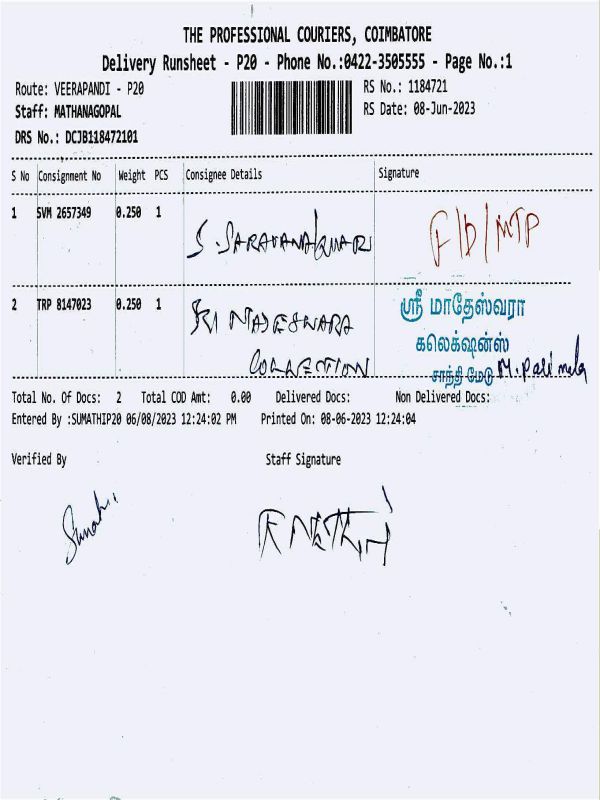 THE PROFESSIONAL COURIERS, COIMBATORE
Delivery Runsheet - P20 - Phone No.:0422-3505555 - Page No.:1
Route: VEERAPANDI - P20
RS No.: 1184721
Staff: MATHANAGOPAL
RS Date: 08-Jun-2023
DRS No.: DCJB118472101
S No Consignment No Weight PCS Consignee Details Signature
1 SVM 2657349 0.250 1 S. SARAVANAKUMAR F/D/MTP
2 TRP 8147023 0.250 1 SRI MADESHWARA
COLLECTION
ஸ்ரீ மாதேஸ்வரா
கலெக்ஷன்ஸ்
சாந்தி மேடு
Total No. Of Docs: 2 Total COD Amt: 0.00 Delivered Docs: Non Delivered Docs:
Entered By :SUMATHIP20 06/08/2023 12:24:02 PM Printed On: 08-06-2023 12:24:04
Verified By Staff Signature